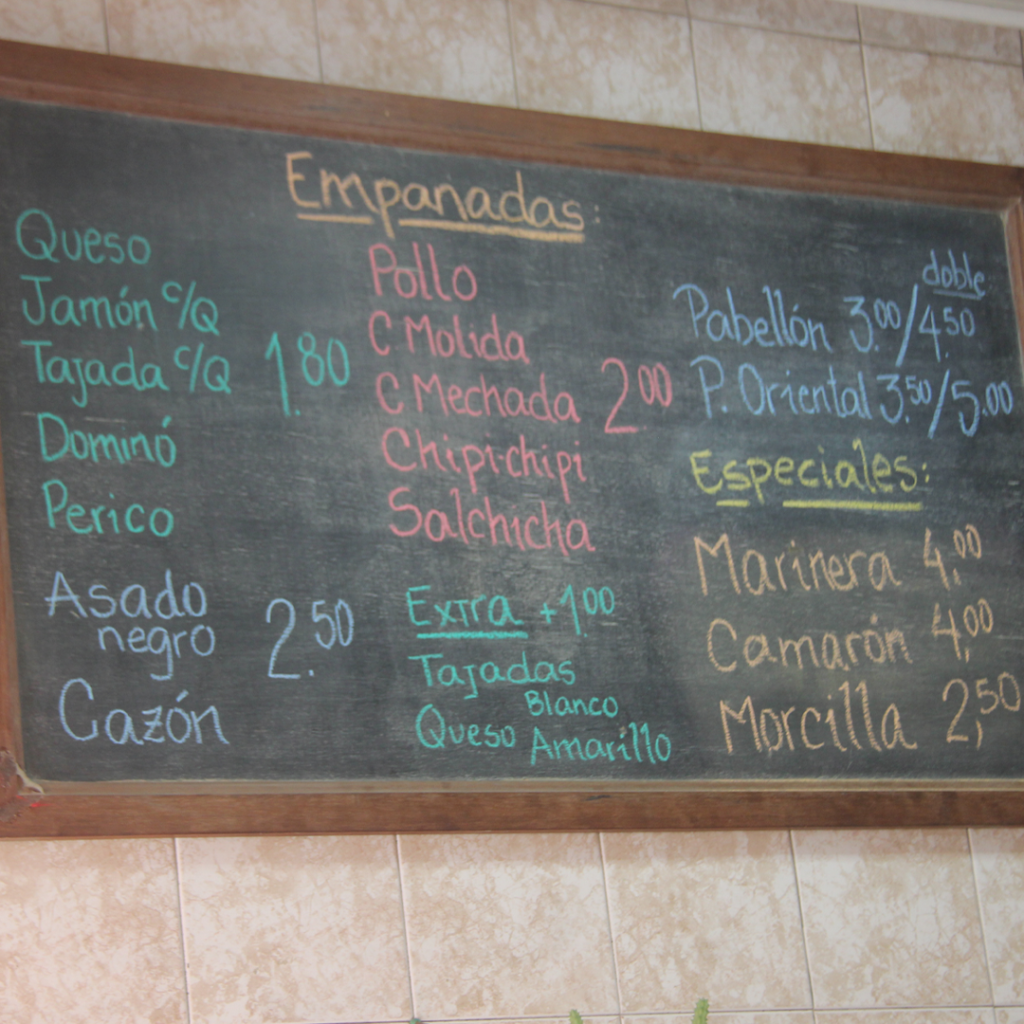 Empanadas:
Queso
Jamón c/Q
Tajada c/Q 1.80
Dominó
Perico
Asado
negro 2.50
Cazón
Pollo
C Molida
C Mechada 2.00
Chipi-chipi
Salchicha
Extra +1.00
Tajadas
Queso Blanco
Amarillo
doble
Pabellón 3.00/4.50
P. Oriental 3.50/5.00
Especiales:
Marinera 4,00
Camarón 4,00
Morcilla 2,50